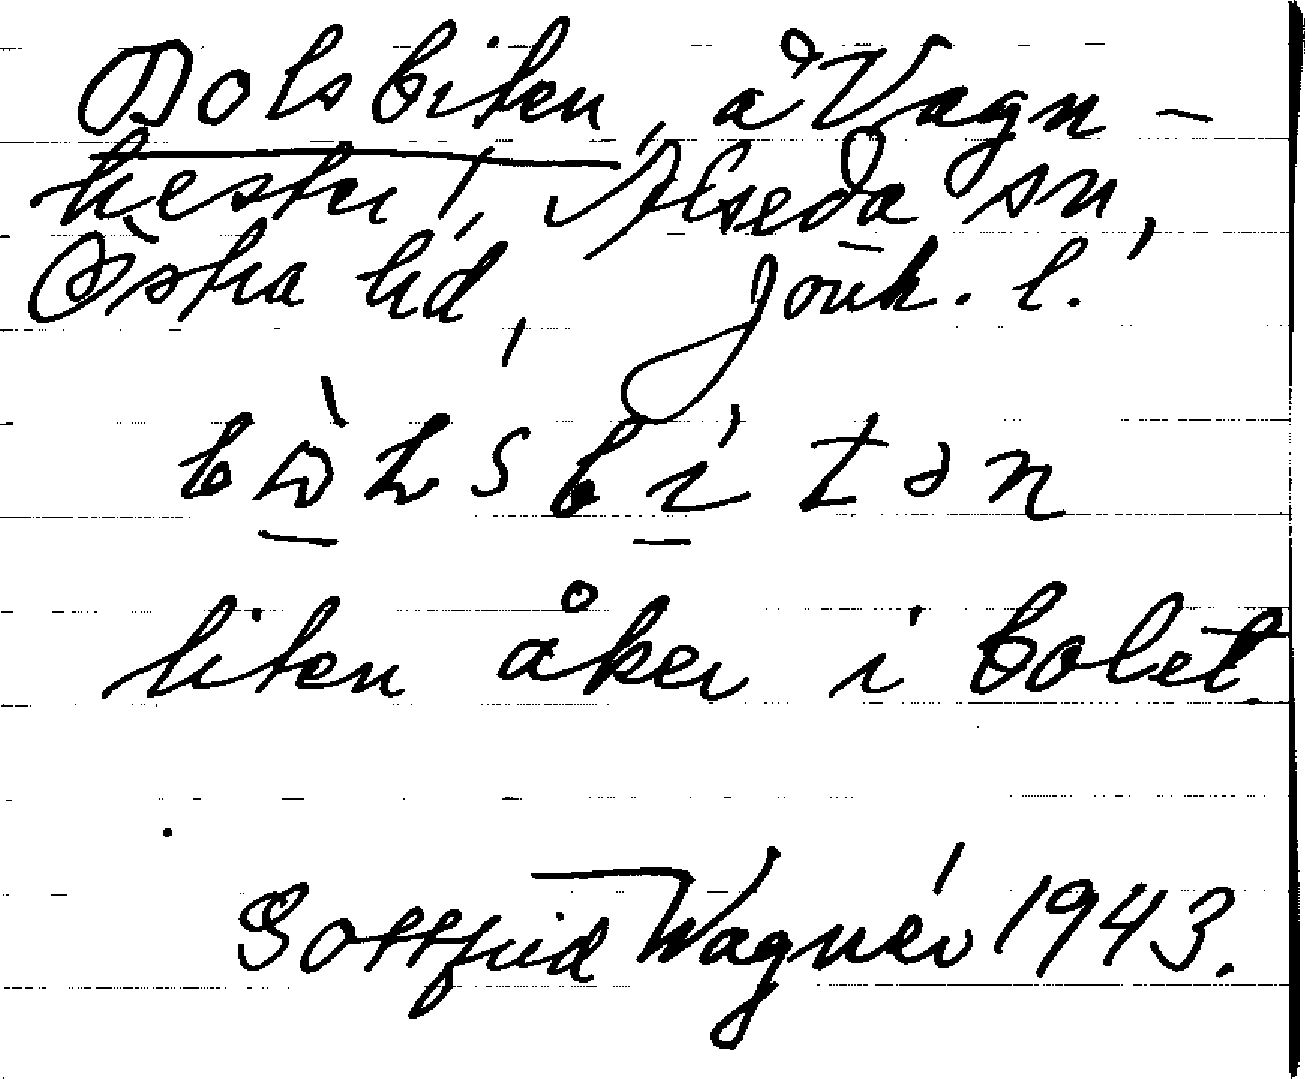 Bolsbiten, å Vagn-
hester, Alseda sn,
Östra hd, Jönk. l.
liten åker i bolet.
Gottfrid Wagnér 1943.